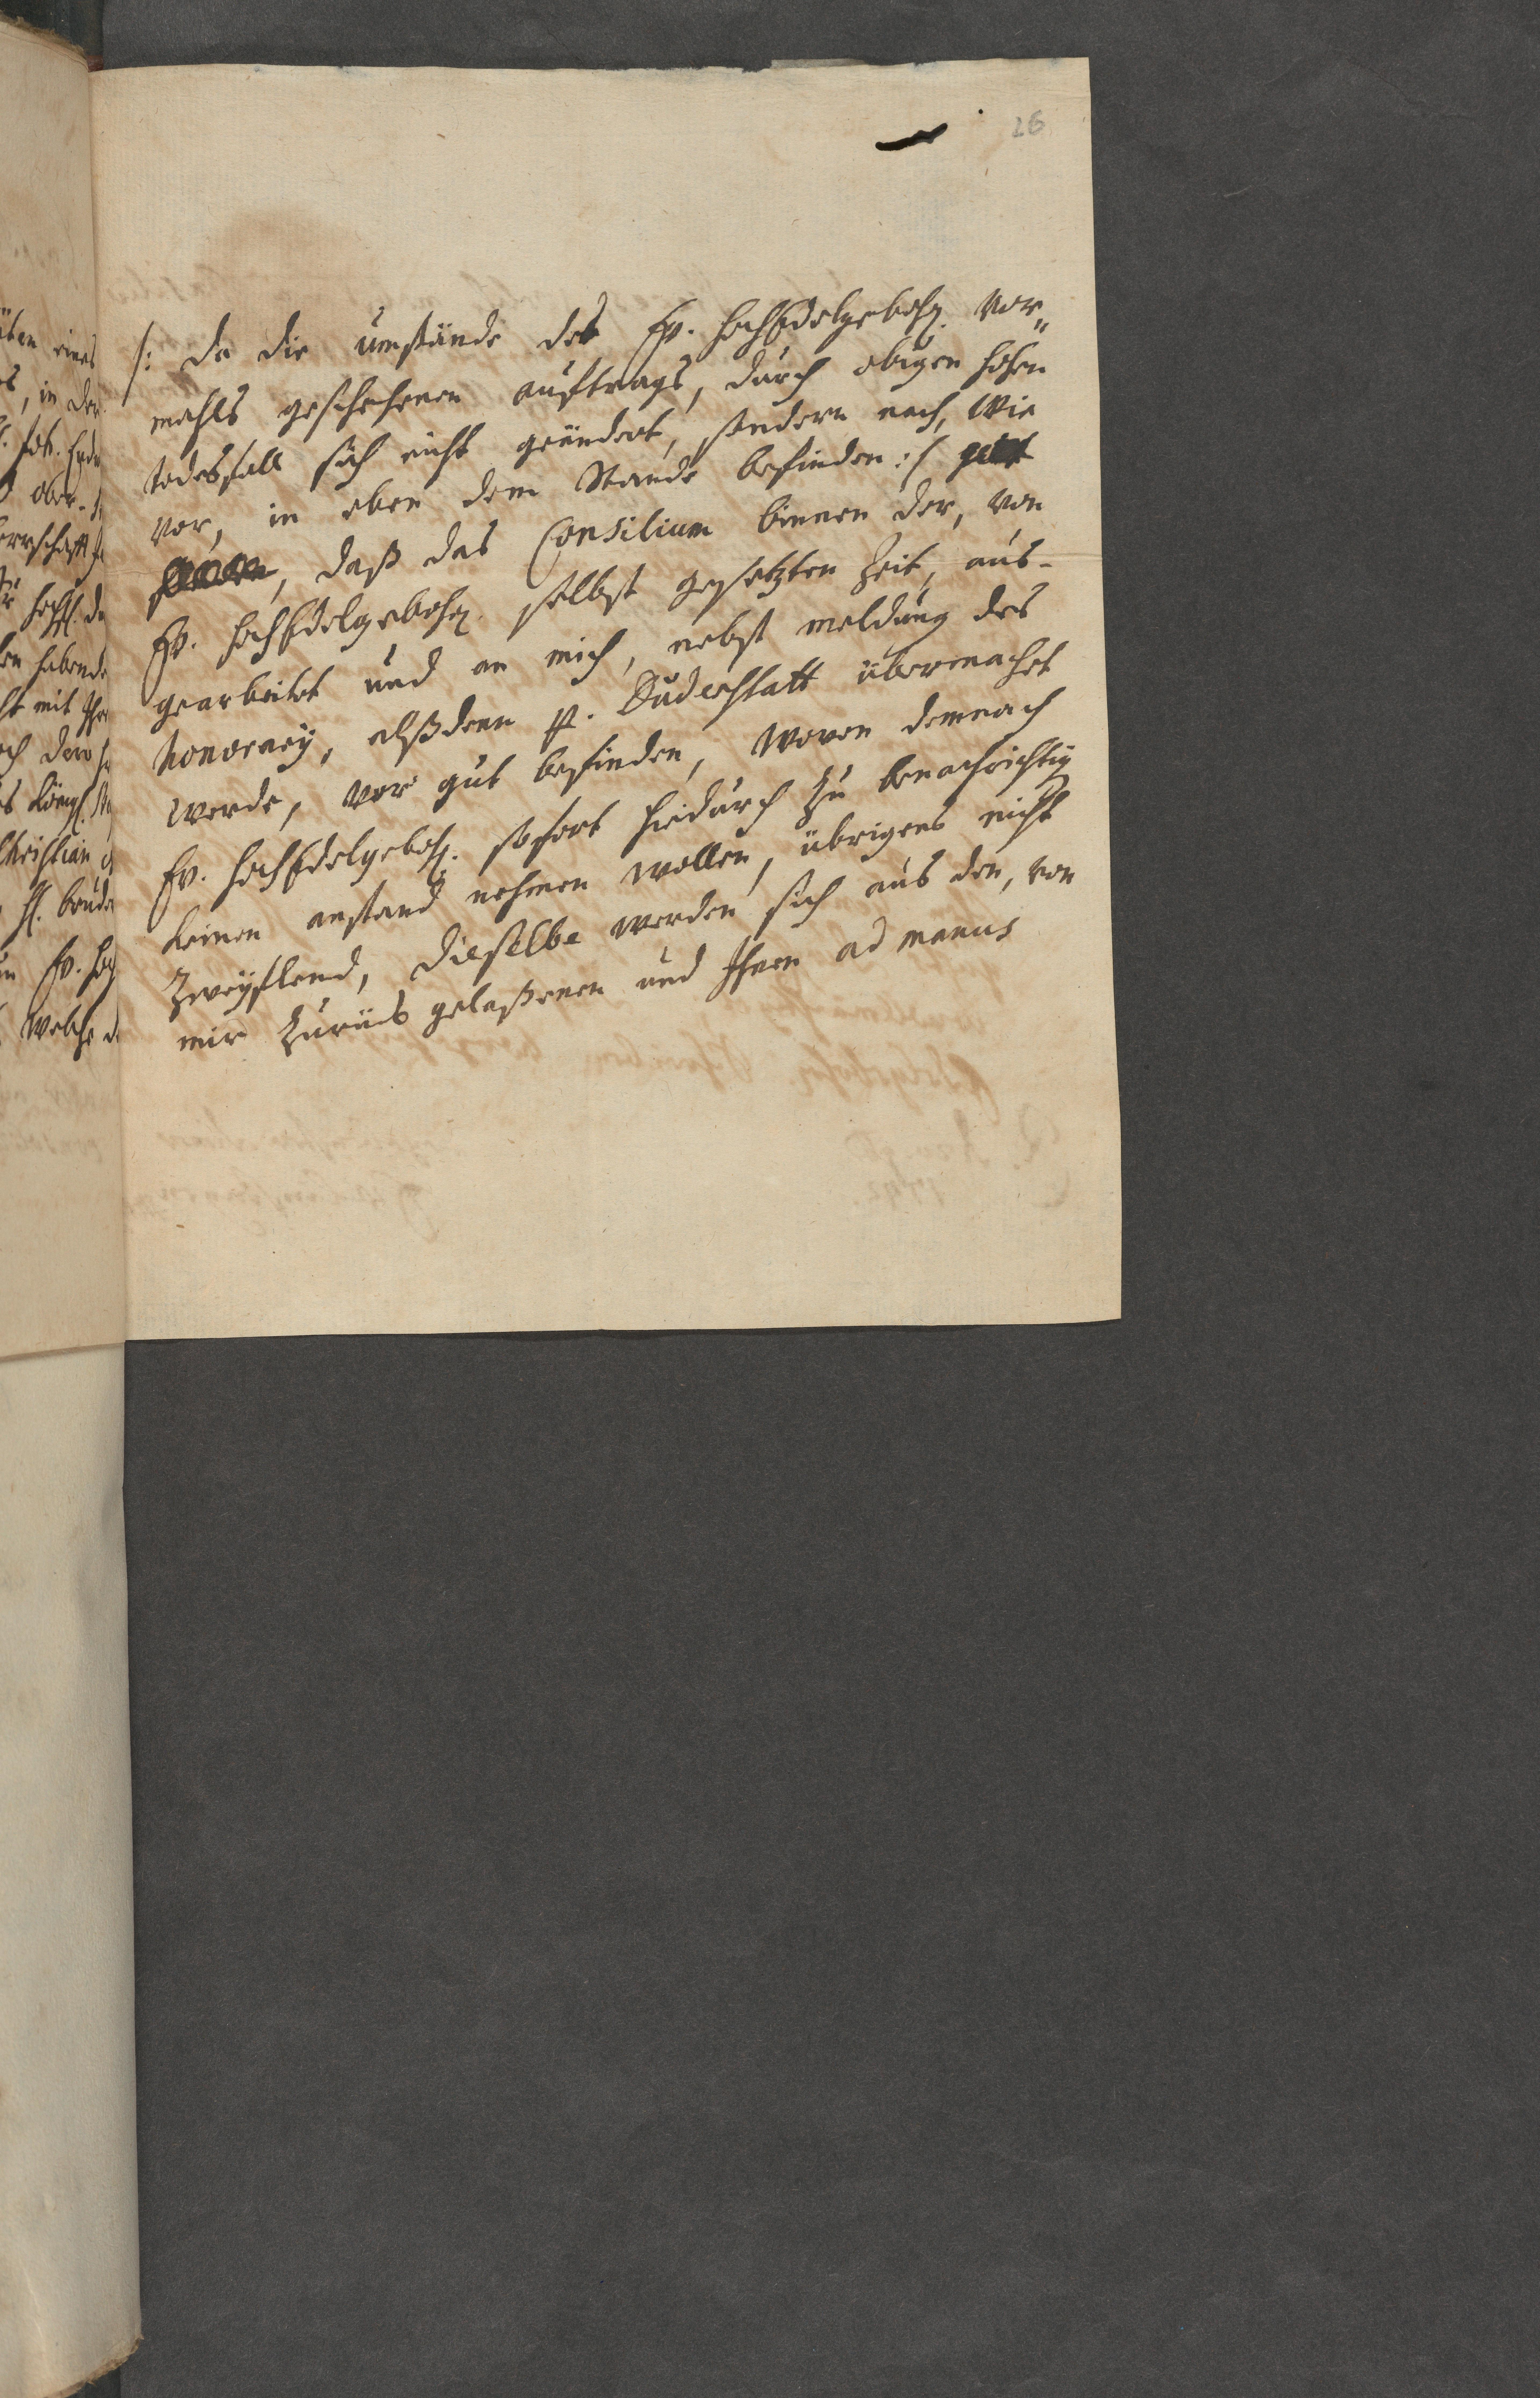 26
/: da die umstände des Ew. HochEdelgebohr. vor„
mahls geschehenen auftrags, durch obigen hohen
todesfall sich nicht geändert, sondern noch, wie
vor, in eben dem Stande befinden :/
, daß das Consilium binnen der, von
Ew. HochEdelgebohr. selbst gesetzten Zeit, aus-
gearbeitet und an mich, nebst meldung des
honorarij, alßdenn p. Duderstatt übermachet
werde, vor gut befinden, wovon demnach
Ew. HochEdelgebohr. sofort hiedurch zu benachrichtig
keinen anstand nehmen wollen, übrigens nicht
zweyflend, dieselbe werden sich aus den, von
mir zurück gelaßenen und Ihnen ad manus